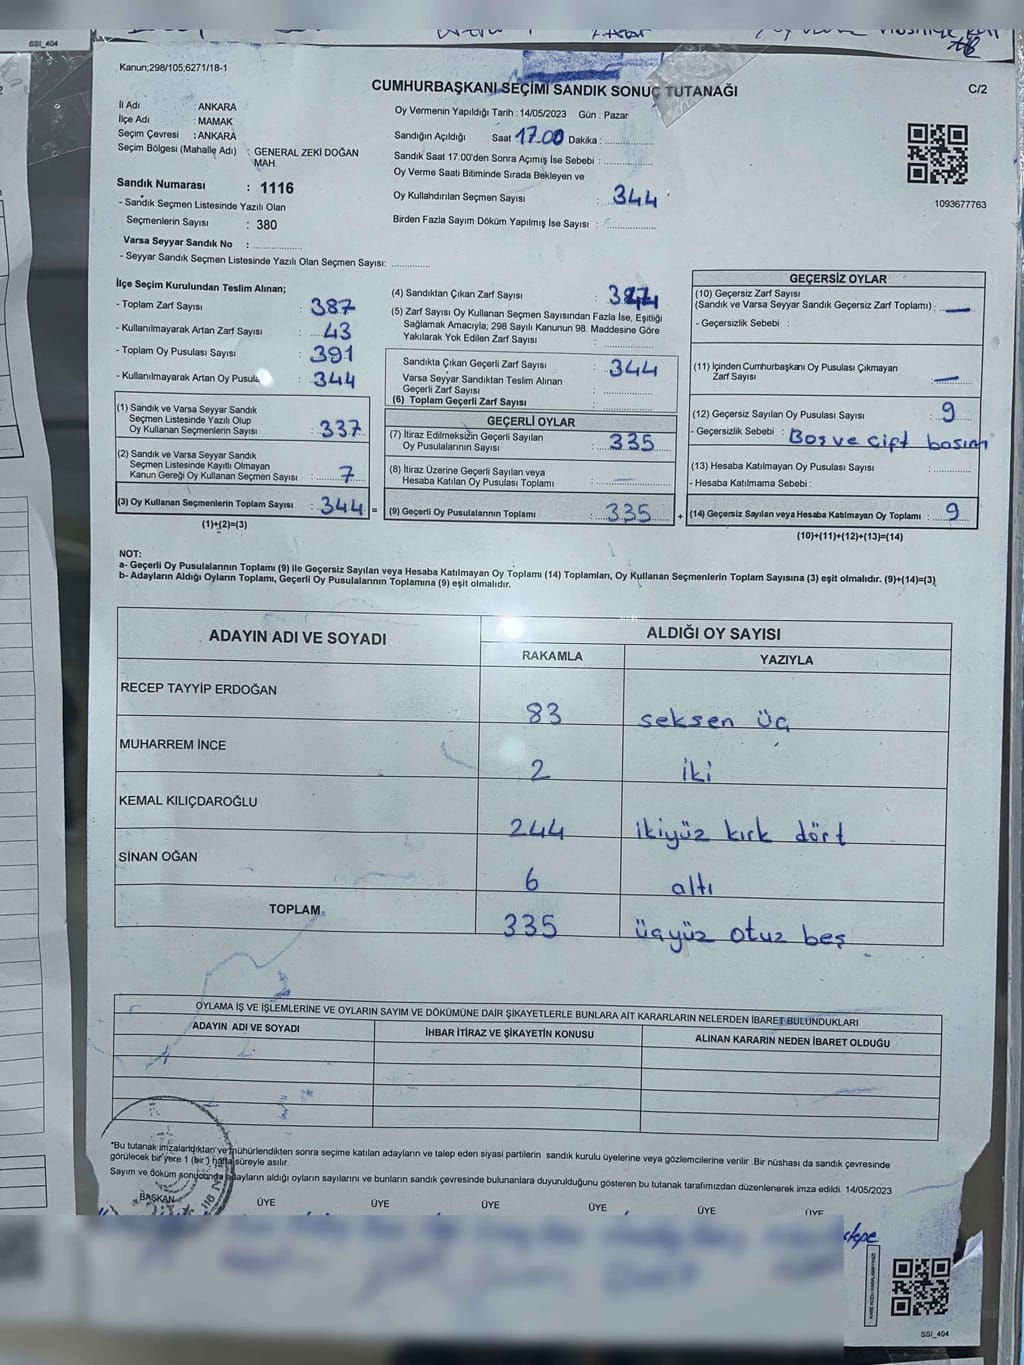 SSI_404
Kanun;298/105,6271/18-1
CUMHURBAŞKANI SEÇİMİ SANDIK SONUÇ TUTANAĞI
C/2
İl Adı : ANKARA
İlçe Adı : MAMAK
Seçim Çevresi : ANKARA
Seçim Bölgesi (Mahalle Adı) : GENERAL ZEKİ DOĞAN
MAH.
Sandık Numarası : 1116
- Sandık Seçmen Listesinde Yazılı Olan
Seçmenlerin Sayısı : 380
Varsa Seyyar Sandık No : ..............
- Seyyar Sandık Seçmen Listesinde Yazılı Olan Seçmen Sayısı: ..............
Oy Vermenin Yapıldığı Tarih : 14/05/2023 Gün : Pazar
Sandığın Açıldığı Saat 17.00 Dakika : ..............
Sandık Saat 17:00'den Sonra Açımış İse Sebebi : ..............
Oy Verme Saati Bitiminde Sırada Bekleyen ve
Oy Kullahdırılan Seçmen Sayısı : 344
Birden Fazla Sayım Döküm Yapılmış İse Sayısı : ..............
1093677763
İlçe Seçim Kurulundan Teslim Alınan;
- Toplam Zarf Sayısı : 387
- Kullanılmayarak Artan Zarf Sayısı : 43
- Toplam Oy Pusulası Sayısı : 391
- Kullanılmayarak Artan Oy Pusula : 344
(1) Sandık ve Varsa Seyyar Sandık
Seçmen Listesinde Yazılı Olup
Oy Kullanan Seçmenlerin Sayısı : 337
(2) Sandık ve Varsa Seyyar Sandık
Seçmen Listesinde Kayıtlı Olmayan
Kanun Gereği Oy Kullanan Seçmen Sayısı : 7
(3) Oy Kullanan Seçmenlerin Toplam Sayısı : 344 =
(1)+(2)=(3)
(4) Sandıktan Çıkan Zarf Sayısı :
(5) Zarf Sayısı Oy Kullanan Seçmen Sayısından Fazla İse, Eşitliği
Sağlamak Amacıyla; 298 Sayılı Kanunun 98. Maddesine Göre
Yakılarak Yok Edilen Zarf Sayısı : ..............
Sandıkta Çıkan Geçerli Zarf Sayısı : 344
Varsa Seyyar Sandıktan Teslim Alınan
Geçerli Zarf Sayısı : ..............
(6) Toplam Geçerli Zarf Sayısı : ..............
GEÇERLİ OYLAR
(7) İtiraz Edilmeksizin Geçerli Sayılan
Oy Pusulalarının Sayısı : 335
(8) İtiraz Üzerine Geçerli Sayılan veya
Hesaba Katılan Oy Pusulası Toplamı : —
(9) Geçerli Oy Pusulalarının Toplamı : 335 +
GEÇERSİZ OYLAR
(10) Geçersiz Zarf Sayısı
(Sandık ve Varsa Seyyar Sandık Geçersiz Zarf Toplamı) : —
- Geçersizlik Sebebi :
(11) İçinden Cumhurbaşkanı Oy Pusulası Çıkmayan
Zarf Sayısı : —
(12) Geçersiz Sayılan Oy Pusulası Sayısı : 9
- Geçersizlik Sebebi : Boş ve çift basım
(13) Hesaba Katılmayan Oy Pusulası Sayısı : ..............
- Hesaba Katılmama Sebebi :
(14) Geçersiz Sayılan veya Hesaba Katılmayan Oy Toplamı : 9
(10)+(11)+(12)+(13)=(14)
NOT:
a- Geçerli Oy Pusulalarının Toplamı (9) ile Geçersiz Sayılan veya Hesaba Katılmayan Oy Toplamı (14) Toplamları, Oy Kullanan Seçmenlerin Toplam Sayısına (3) eşit olmalıdır. (9)+(14)=(3)
b- Adayların Aldığı Oyların Toplamı, Geçerli Oy Pusulalarının Toplamına (9) eşit olmalıdır.
ADAYIN ADI VE SOYADI ALDIĞI OY SAYISI
RAKAMLA YAZIYLA
RECEP TAYYİP ERDOĞAN 83 seksen üç
MUHARREM İNCE 2 iki
KEMAL KILIÇDAROĞLU 244 ikiyüz kırk dört
SİNAN OĞAN 6 altı
TOPLAM 335 üçyüz otuz beş
OYLAMA İŞ VE İŞLEMLERİNE VE OYLARIN SAYIM VE DÖKÜMÜNE DAİR ŞİKAYETLERLE BUNLARA AİT KARARLARIN NELERDEN İBARET BULUNDUKLARI
ADAYIN ADI VE SOYADI İHBAR İTİRAZ VE ŞİKAYETİN KONUSU ALINAN KARARIN NEDEN İBARET OLDUĞU
*Bu tutanak imzalandıktan ve mühürlendikten sonra seçime katılan adayların ve talep eden siyasi partilerin sandık kurulu üyelerine veya gözlemcilerine verilir .Bir nüshası da sandık çevresinde
görülecek bir yere 1 (bir ) hafta süreyle asılır.
Sayım ve döküm sonucunda adayların aldığı oyların sayılarını ve bunların sandık çevresinde bulunanlara duyurulduğunu gösteren bu tutanak tarafımızdan düzenlenerek imza edildi. 14/05/2023
BAŞKAN ÜYE ÜYE ÜYE ÜYE ÜYE ÜYE
SSI_404